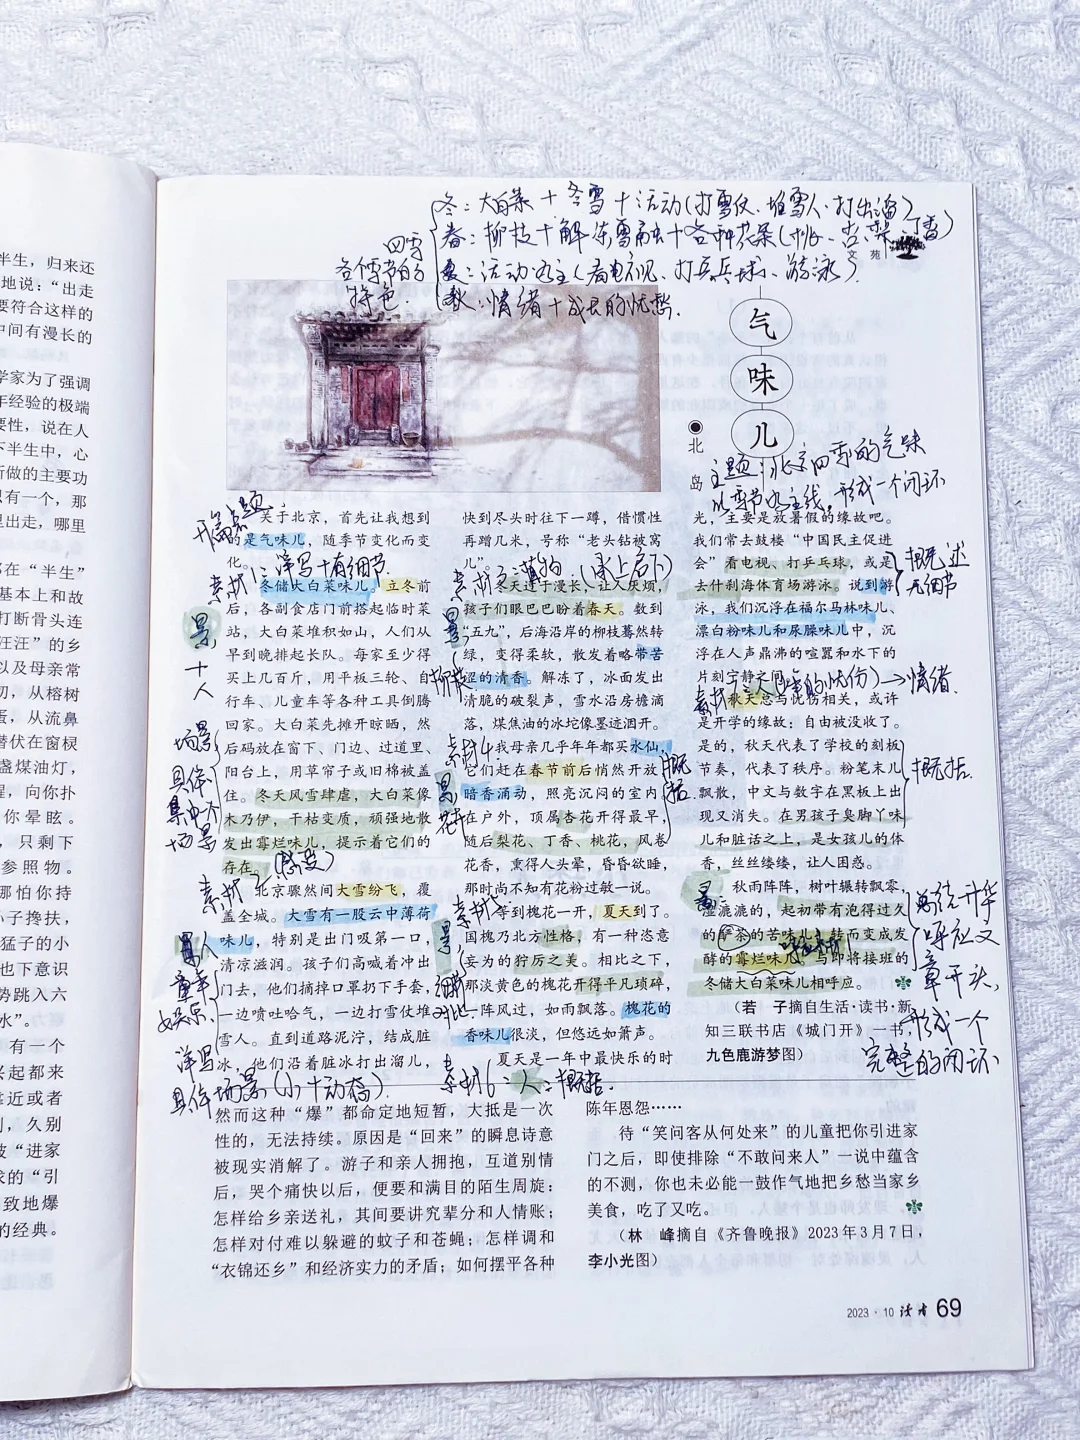 半生，归来还
地说：“出走
要符合这样的
中间有漫长的
学家为了强调
年经验的极端
要性，说在人
下半生中，心
所做的主要功
只有一个，那
里出走，哪里
都在“半生”
基本上和故
打断骨头连
汪汪”的乡
以及母亲常
切，从榕树
蛋，从流鼻
潜伏在窗棂
盏煤油灯，
星，向你扑
你晕眩。
，只剩下
参照物。
哪怕你持
小子搀扶，
猛子的小
也下意识
势跳入六
水”。
有一个
兴起都来
靠近或者
别，久别
被“进家
求的“引
极致地爆
的经典。
冬：大白菜+冬雪+活动(打雪仗、堆雪人、打出溜)
春：柳枝+解冻雪融+各种花朵(桃、杏、梨、丁香)
夏：活动为主(看电视、打乒乓球、游泳)
秋：情绪+成长的忧愁.
四季
各个季节的
特色.
文苑
气味儿
●北岛
主题：北京四季的气味
以季节为主线，形成一个闭环
开篇点题
关于北京，首先让我想到
的是气味儿，随季节变化而变
化。
素材1：详写+有细节
冬储大白菜味儿。立冬前
后，各副食店门前搭起临时菜
站，大白菜堆积如山，人们从
早到晚排起长队。每家至少得
买上几百斤，用平板三轮、自
行车、儿童车等各种工具倒腾
回家。大白菜先摊开晾晒，然
后码放在窗下、门边、过道里、
阳台上，用草帘子或旧棉被盖
住。冬天风雪肆虐，大白菜像
木乃伊，干枯变质，顽强地散
发出霉烂味儿，提示着它们的
存在。
景+人
场景
具体、
集中个
场景
素材
北京骤然间大雪纷飞，覆
盖全城。大雪有一股云中薄荷
味儿，特别是出门吸第一口，
清凉滋润。孩子们高喊着冲出
门去，他们摘掉口罩扔下手套，
一边喷吐哈气，一边打雪仗堆
雪人。直到道路泥泞，结成脏
冰，他们沿着脏冰打出溜儿，
童年
娱乐.
详写
具体场景(小+动荡).
快到尽头时往下一蹲，借惯性
再蹭几米，号称“老头钻被窝
儿”。
(承上启下)
冬天过于漫长，让人厌烦，
孩子们眼巴巴盼着春天。数到
“五九”，后海沿岸的柳枝蓦然转
绿，变得柔软，散发着略带苦
涩的清香。解冻了，冰面发出
清脆的破裂声，雪水沿房檐滴
落，煤焦油的冰坨像墨迹洇开。
景
柳枝
素材4
我母亲几乎年年都买水仙，
它们赶在春节前后悄然开放，
暗香涌动，照亮沉闷的室内。
在户外，顶属杏花开得最早，
随后梨花、丁香、桃花，风卷
花香，熏得人头晕，昏昏欲睡，
那时尚不知有花粉过敏一说。
景
花卉
概括.
素材5
等到槐花一开，夏天到了。
国槐乃北方性格，有一种恣意
妄为的狞厉之美。相比之下，
那淡黄色的槐花开得平凡琐碎，
一阵风过，如雨飘落。槐花的
香味儿很淡，但悠远如箫声。
景
细节
对比
素材6：人：概括.
夏天是一年中最快乐的时
光，主要是放暑假的缘故吧。
我们常去鼓楼“中国民主促进
会”看电视、打乒乓球，或是
去什刹海体育场游泳。说到游
泳，我们沉浮在福尔马林味儿、
漂白粉味儿和尿臊味儿中，沉
浮在人声鼎沸的喧嚣和水下的
片刻宁静之间。
概述
无细节
→情绪.
秋天总与忧伤相关，或许
是开学的缘故：自由被没收了。
是的，秋天代表了学校的刻板
节奏，代表了秩序。粉笔末儿
飘散，中文与数字在黑板上出
现又消失。在男孩子臭脚丫味
儿和脏话之上，是女孩儿的体
香，丝丝缕缕，让人困惑。
概括.
秋雨阵阵，树叶辗转飘零，
湿漉漉的，起初带有泡得过久
的酽茶的苦味儿，转而变成发
酵的霉烂味儿，与即将接班的
冬储大白菜味儿相呼应。
总结升华
呼应文
章开头，
形成一个
完整的闭环
（若 子摘自生活·读书·新
知三联书店《城门开》一书，
九色鹿游梦图）
然而这种“爆”都命定地短暂，大抵是一次
性的，无法持续。原因是“回来”的瞬息诗意
被现实消解了。游子和亲人拥抱，互道别情
后，哭个痛快以后，便要和满目的陌生周旋：
怎样给乡亲送礼，其间要讲究辈分和人情账；
怎样对付难以躲避的蚊子和苍蝇；怎样调和
“衣锦还乡”和经济实力的矛盾；如何摆平各种
陈年恩怨……
待“笑问客从何处来”的儿童把你引进家
门之后，即使排除“不敢问来人”一说中蕴含
的不测，你也未必能一鼓作气地把乡愁当家乡
美食，吃了又吃。
（林 峰摘自《齐鲁晚报》2023年3月7日，
李小光图）
2023·10 读者 69